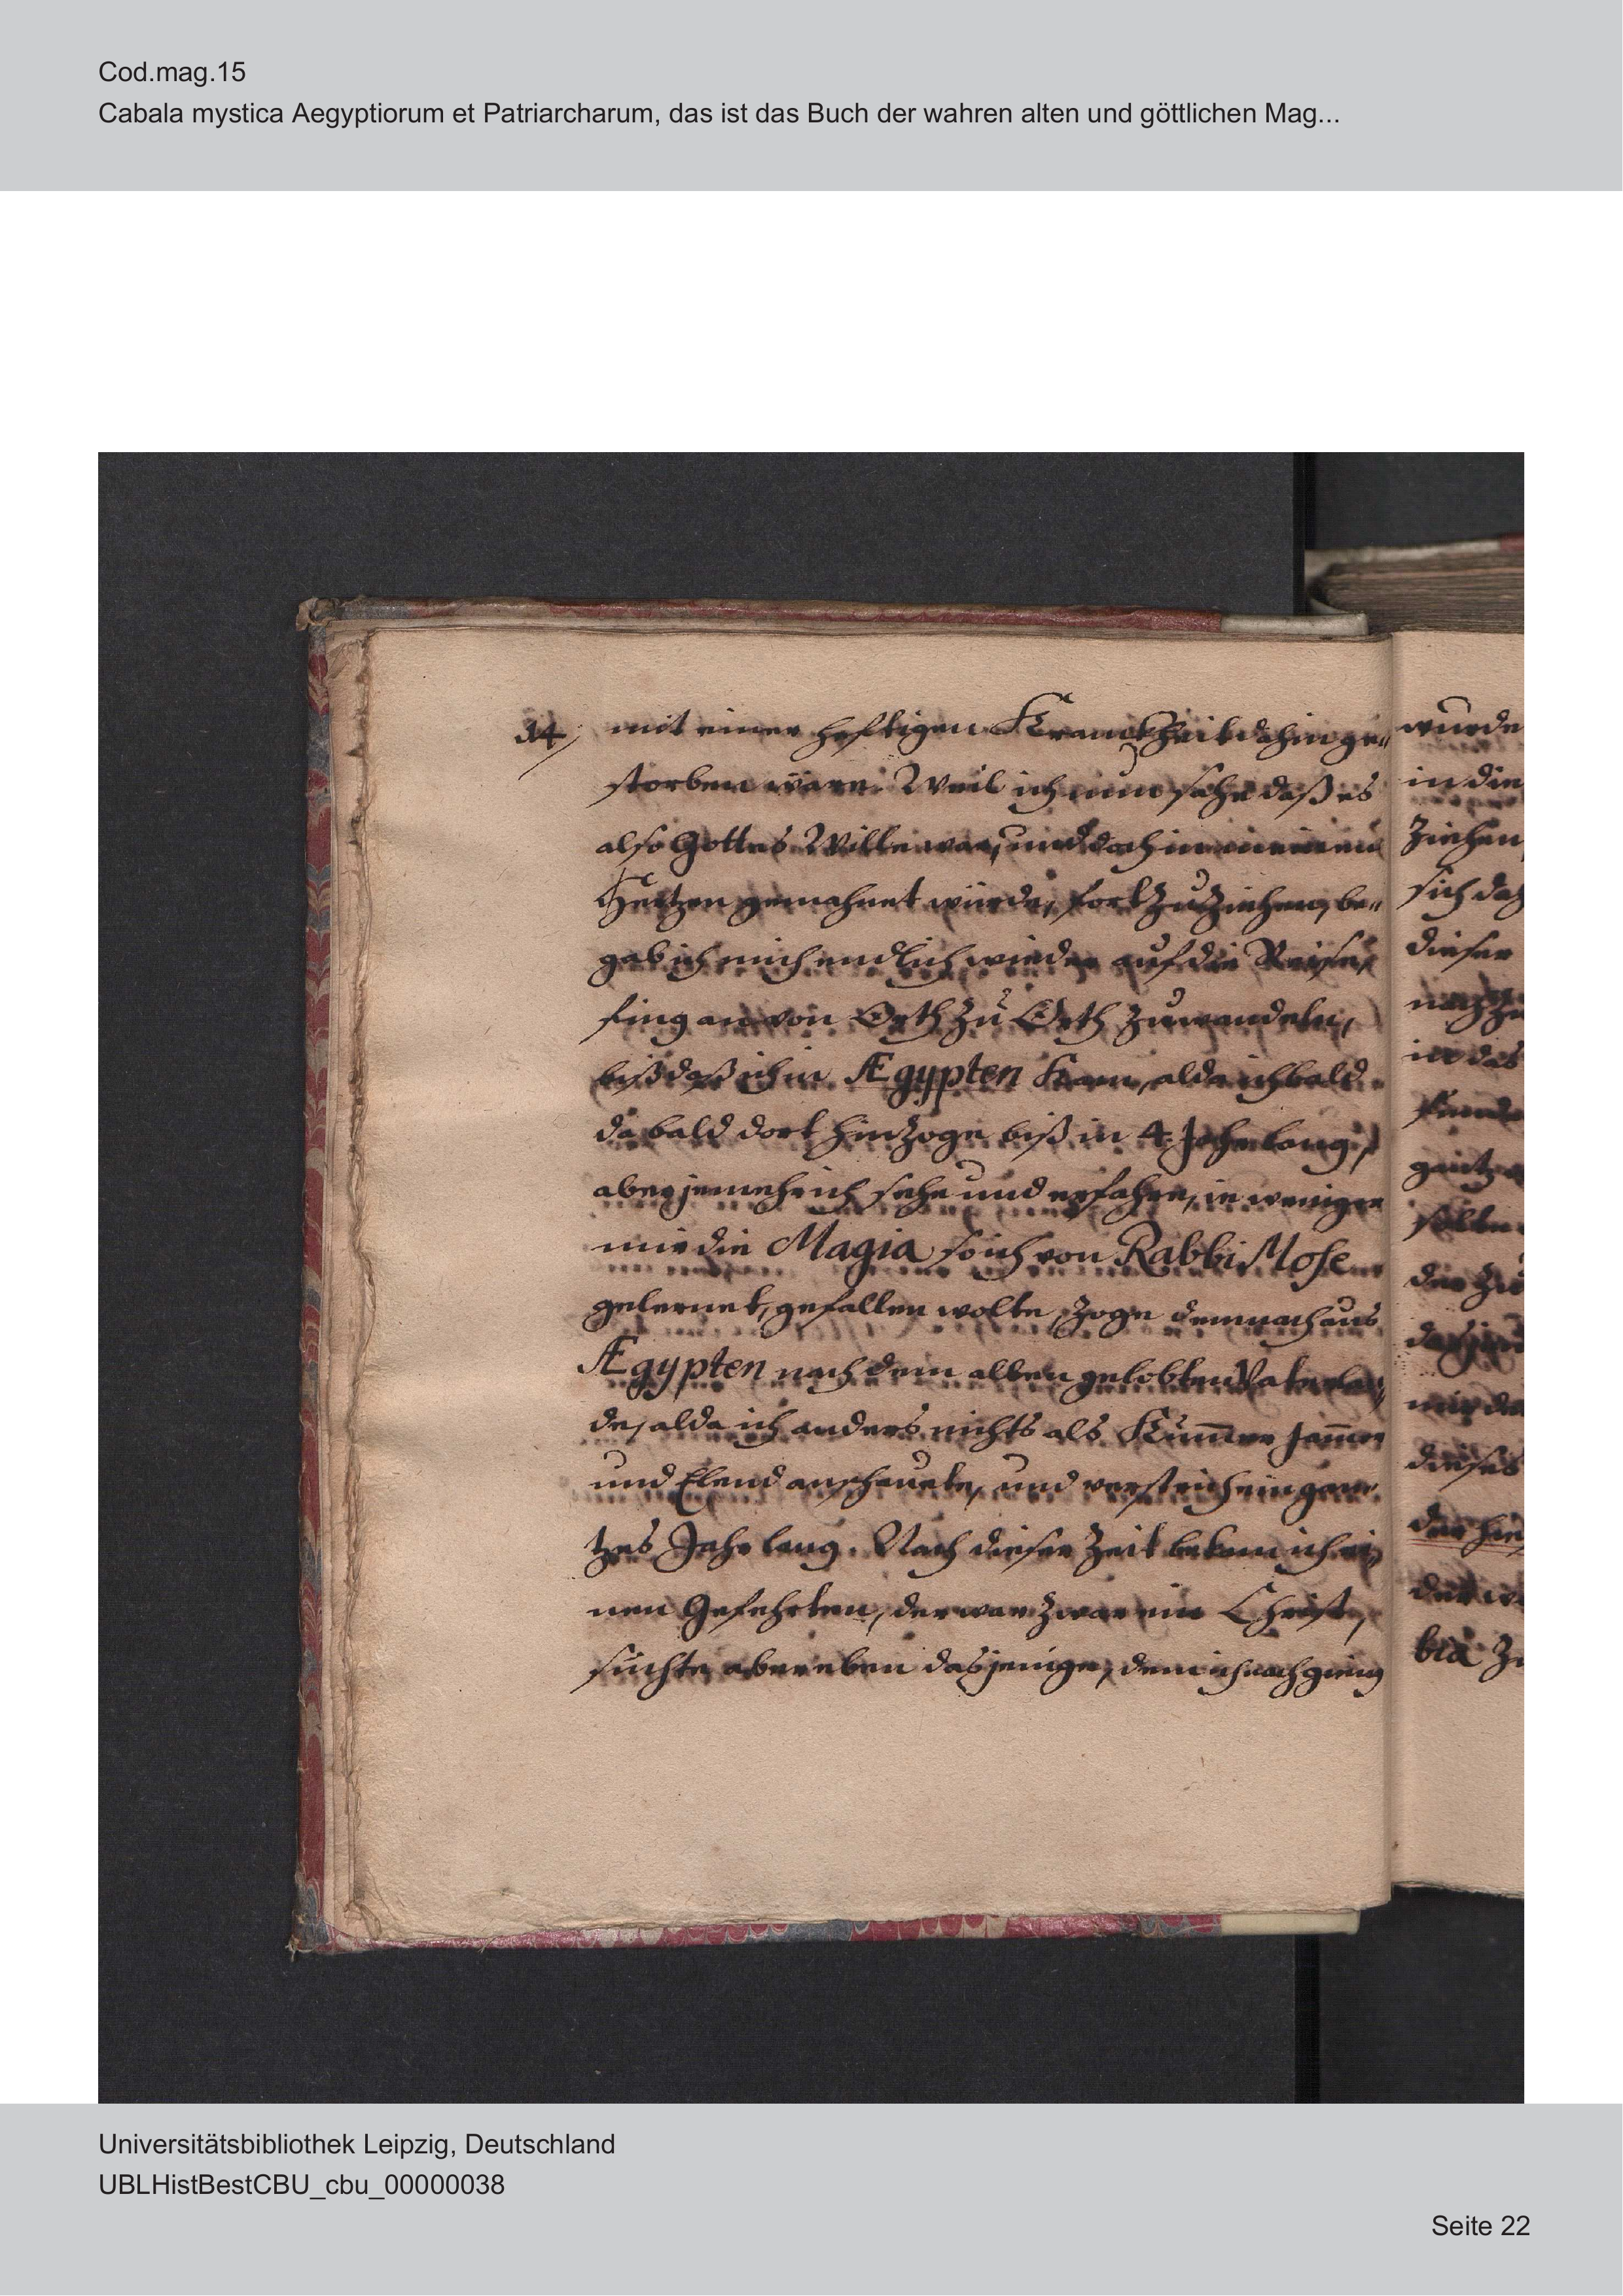 Cod.mag.15
Cabala mystica Aegyptiorum et Patriarcharum, das ist das Buch der wahren alten und göttlichen Mag...
14/ mit einer hefftigen Kranckheit dahin ge„
storben wäre. Weil ich nun sahe daß es
also Gottes Wille war, und doch in meinem
Hertzen gemahnet würde, fort zu ziehen, be„
gab ich mich endlich wieder auf die Reise,
fing an von Orth zu Orth zu wandeln,
biß daß ich in Ægypten kam, alda ich bald
da bald dort hinzoge biß in 4 Jahr lang,
aber je mehr ich sehe und erfahre, ie weniger
mir die Magia so ich von Rabbi Mose
gelernet, gefallen wolte, zoge demnach aus
Ægypten nach dem alten gelobten Vaterlan„
de, alda ich anders nichts als Kum̅er Jam̅er
und Elend anschauete, und verstrich ein gan„
tzes Jahr lang. Nach dieser Zeit bekam ich ei„
nen Gefehrten, der war zwar ein Christ,
suchte aber eben dasjenige, dem ich nachgieng
wurde
in die
ziehen
sich daß
dieser
nach
in das
gantz
solten
der zu
mir
dieses
der
bia
Universitätsbibliothek Leipzig, Deutschland
UBLHistBestCBU_cbu_00000038
Seite 22